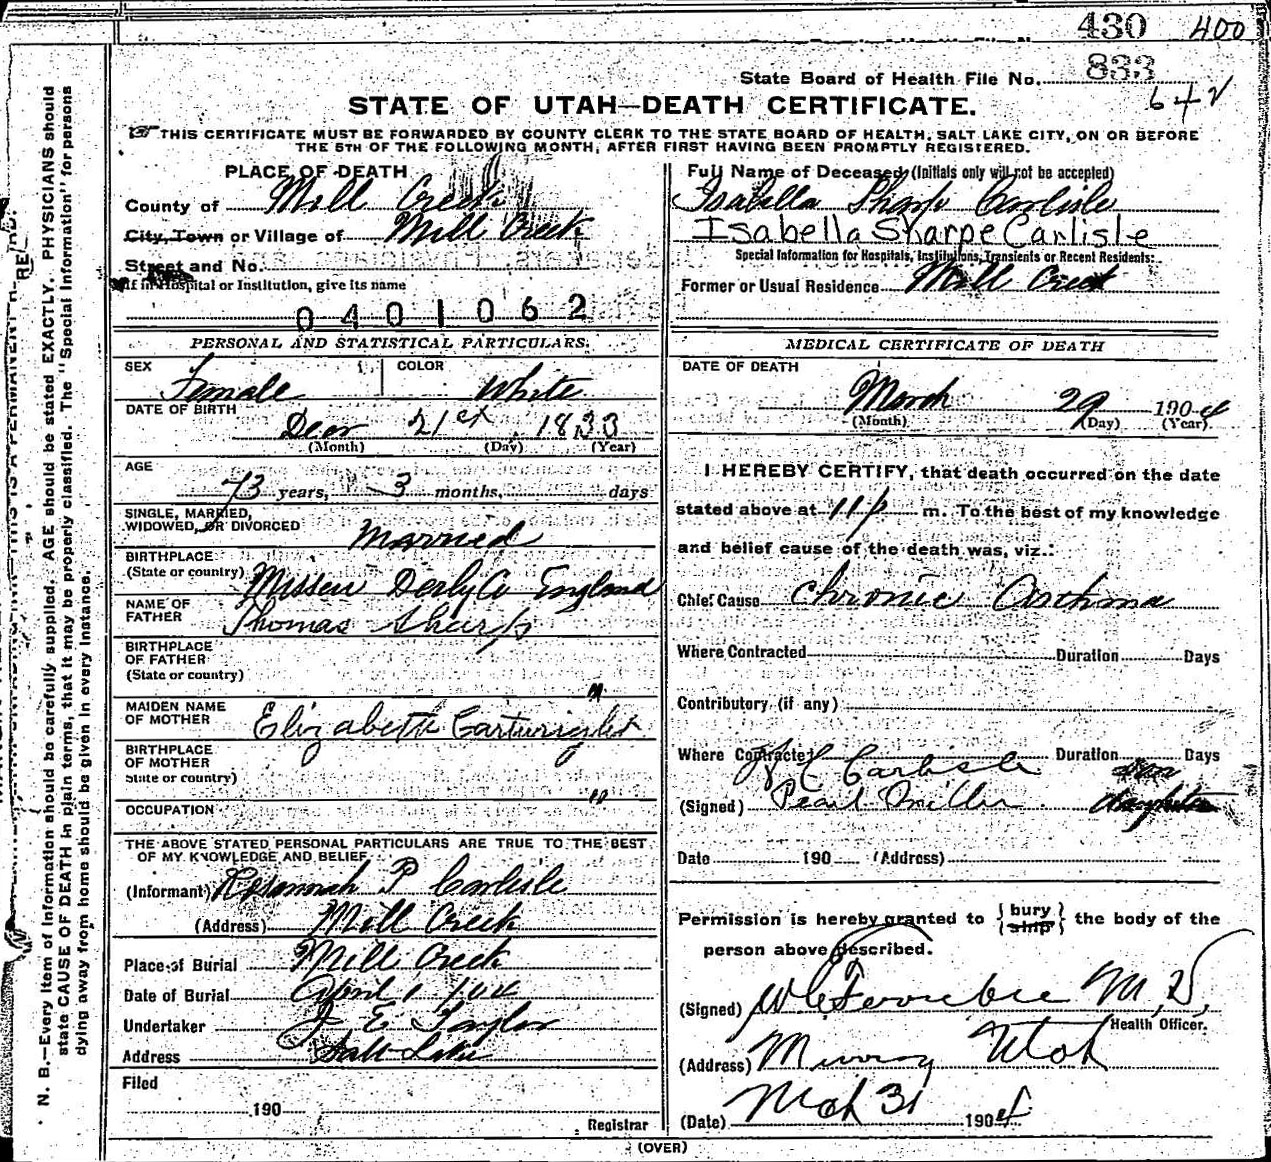 430 400
State Board of Health File No. 833
642
STATE OF UTAH—DEATH CERTIFICATE.
☞ THIS CERTIFICATE MUST BE FORWARDED BY COUNTY CLERK TO THE STATE BOARD OF HEALTH, SALT LAKE CITY, ON OR BEFORE
THE 5TH OF THE FOLLOWING MONTH, AFTER FIRST HAVING BEEN PROMPTLY REGISTERED.
PLACE OF DEATH
County of Mill Creek
City, Town or Village of Mill Creek
Street and No.
If in Hospital or Institution, give its name
0401062
PERSONAL AND STATISTICAL PARTICULARS.
SEX Female COLOR White
DATE OF BIRTH
Decr 21st 1833
(Month) (Day) (Year)
AGE
73 years, 3 months, days
SINGLE, MARRIED,
WIDOWED, OR DIVORCED Married
BIRTHPLACE
(State or country) Missen Derby Co England
NAME OF
FATHER Thomas Sharp
BIRTHPLACE
OF FATHER
(State or country)
"
MAIDEN NAME
OF MOTHER Elizabeth Cartwright
BIRTHPLACE
OF MOTHER
State or country)
"
OCCUPATION
THE ABOVE STATED PERSONAL PARTICULARS ARE TRUE TO THE BEST
OF MY KNOWLEDGE AND BELIEF
(Informant) Rosannah P Carlisle
(Address) Mill Creek
Place of Burial Mill Creek
Date of Burial April 1 1904
Undertaker J E Taylor
Address Salt Lake
Filed
190
Registrar
Full Name of Deceased (Initials only will not be accepted)
Isabella Sharp Carlisle
Isabella Sharpe Carlisle
Special Information for Hospitals, Institutions, Transients or Recent Residents:
Former or Usual Residence Mill Creek
MEDICAL CERTIFICATE OF DEATH
DATE OF DEATH
March 29 1904
(Month) (Day) (Year)
I HEREBY CERTIFY, that death occurred on the date
stated above at 11 p m. To the best of my knowledge
and belief cause of the death was, viz.:
Chief Cause Chronic Asthma
Where Contracted Duration Days
Contributory (if any)
Where Contracted Duration Days
J C Carlisle son
(Signed) Pearl Miller daughter
Date 190 (Address)
Permission is hereby granted to {bury
ship} the body of the
person above described.
(Signed) W C Ferrebee M,D,
Health Officer.
(Address) Murray Utah
(Date) Mch 31 1904
(OVER)
N. B.—Every item of Information should be carefully supplied. AGE should be stated EXACTLY. PHYSICIANS should
state CAUSE OF DEATH in plain terms, that it may be properly classified. The "Special Information" for persons
dying away from home should be given in every instance.